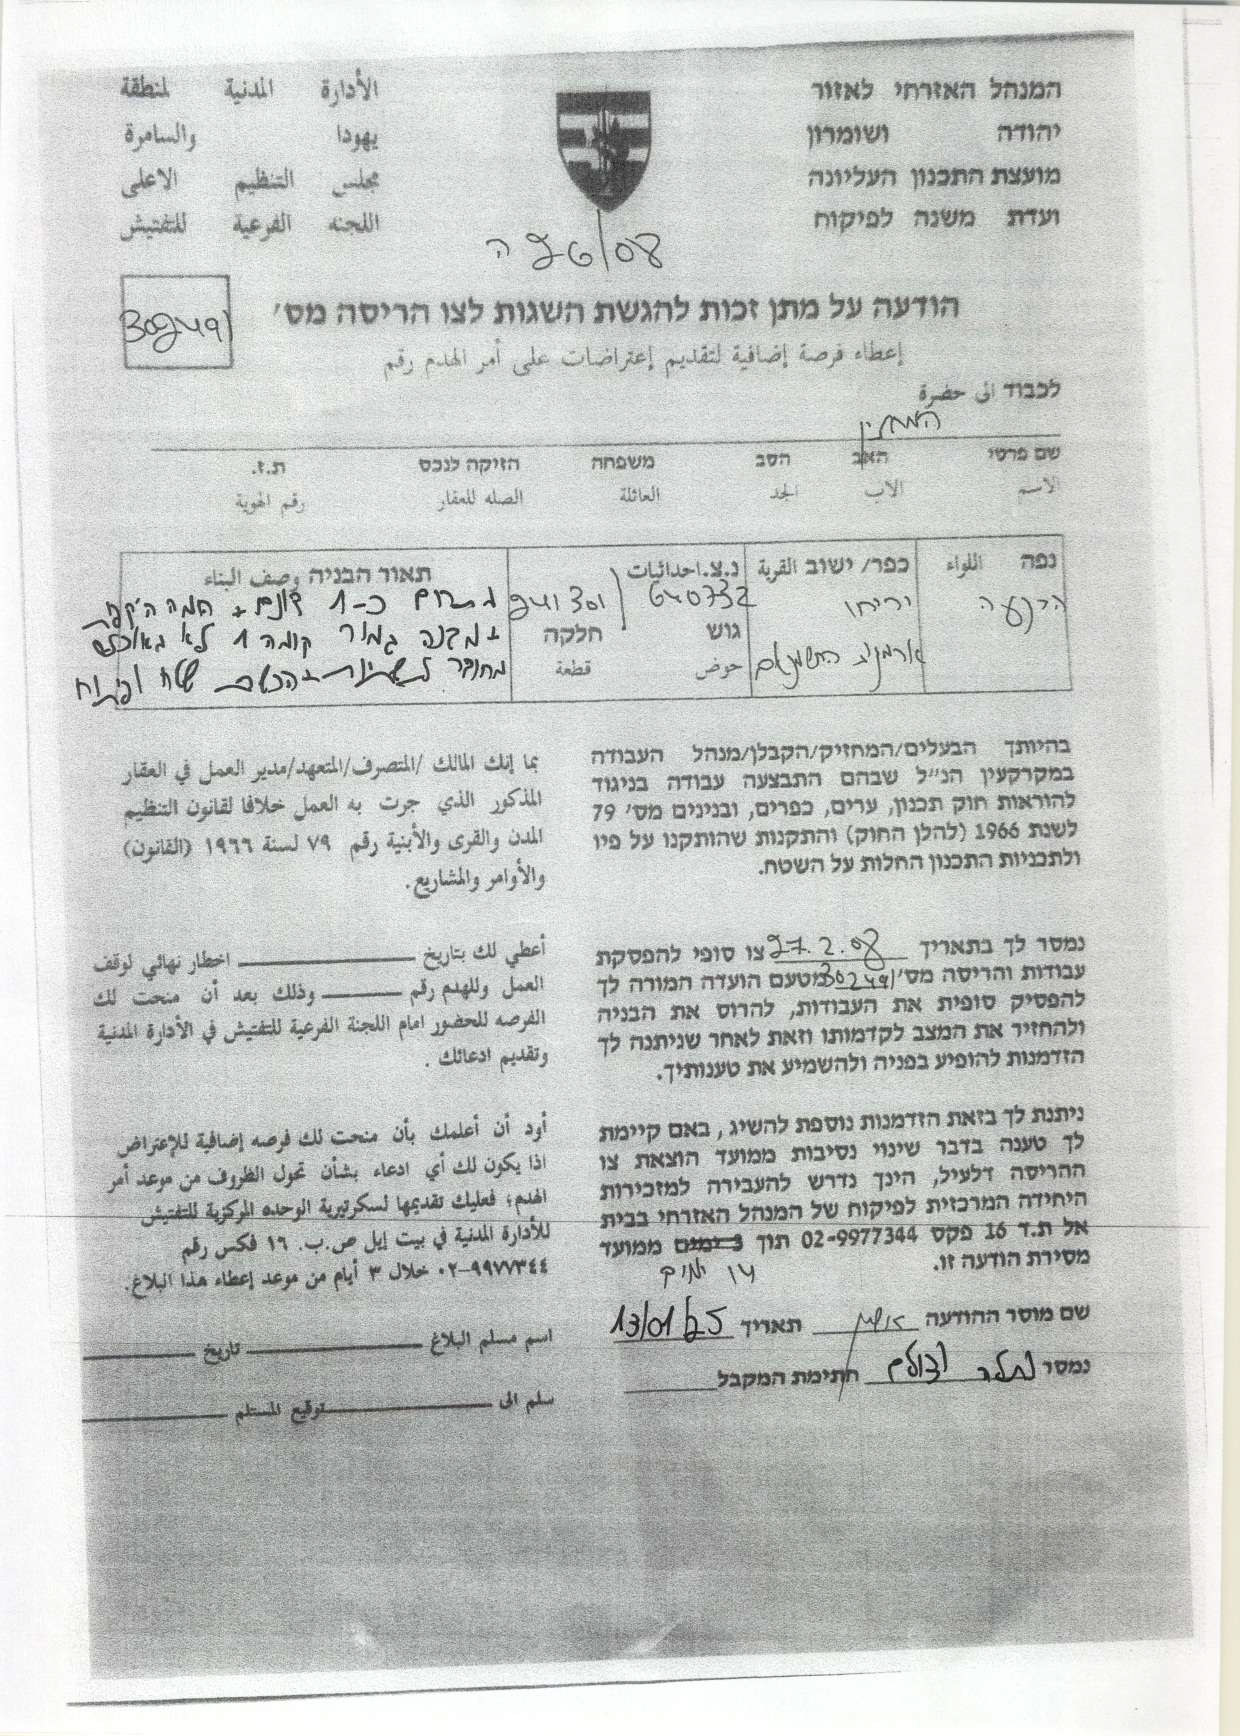 המנהל האזרחי לאזור
יהודה ושומרון
מועצת התכנון העליונה
ועדת משנה לפיקוח
الأدارة المدنية لمنطقة
يهودا والسامرة
مجلس التنظيم الاعلى
اللجنه الفرعية للتفتيش
הודעה על מתן זכות להגשת השגות לצו הריסה מס׳
302491
إعطاء فرصة إضافية لتقديم إعتراضات على أمر الهدم رقم
לכבוד الى حضرة
המחזיק
שם פרטי האב הסב משפחה הזיקה לנכס ת.ז.
الاسم الاب الجد العائلة الصله للعقار رقم الهوية
נפה اللواء
הבקעה
כפר/ ישוב القرية
יריחו
נ.צ.احداثيات
241301 / 640732
גוש חלקה
حوض قطعة
תאור הבניה وصف البناء
כ-1 דונם
מבנה גמור קומה 1 לא מאוכלס
מחובר לתשתיות הכשרת שטח ופיתוח
בהיותך הבעלים/המחזיק/הקבלן/מנהל העבודה
במקרקעין הנ״ל שבהם התבצעה עבודה בניגוד
להוראות חוק תכנון, ערים, כפרים, ובנינים מס׳ 79
לשנת 1966 (להלן החוק) והתקנות שהותקנו על פיו
ולתכניות התכנון החלות על השטח.
بما إنك المالك /المتصرف/المتعهد/مدير العمل في العقار
المذكور الذي جرت به العمل خلافا لقانون التنظيم
المدن والقرى والأبنية رقم ٧٩ لسنة ١٩٦٦ (القانون)
والأوامر والمشاريع.
נמסר לך בתאריך 27.2.08 צו סופי להפסקת
עבודות והריסה מס׳ 302491 מטעם הועדה המורה לך
להפסיק סופית את העבודות, להרוס את הבניה
ולהחזיר את המצב לקדמותו וזאת לאחר שניתנה לך
הזדמנות להופיע בפניה ולהשמיע את טענותיך.
أعطي لك بتاريخ اخطار نهائي لوقف
العمل وللهدم رقم وذلك بعد أن منحت لك
الفرصه للحضور امام اللجنة الفرعية للتفتيش في الأدارة المدنية
وتقديم ادعائك .
ניתנת לך בזאת הזדמנות נוספת להשיג , באם קיימת
לך טענה בדבר שינוי נסיבות ממועד הוצאת צו
ההריסה דלעיל, הינך נדרש להעבירה למזכירות
היחידה המרכזית לפיקוח של המנהל האזרחי בבית
אל ת.ד 16 פקס 02-9977344 תוך 3 ימים ממועד
מסירת הודעה זו.
ימים
أود أن أعلمك بأن منحت لك فرصه إضافية للإعتراض
اذا يكون لك أي ادعاء بشأن تحول الظروف من موعد أمر
الهدم؛ فعليك تقديمها لسكرتيرية الوحده المركزية للتفتيش
للأدارة المدنية في بيت إيل ص.ب. ١٦ فكس رقم
٠٢-٩٩٧٧٣٤٤ خلال ٣ أيام من موعد إعطاء هذا البلاغ.
שם מוסר ההודעה תאריך 13/01/25
נמסר חתימת המקבל
اسم مسلم البلاغ تاريخ
سلم الى توقيع المستلم